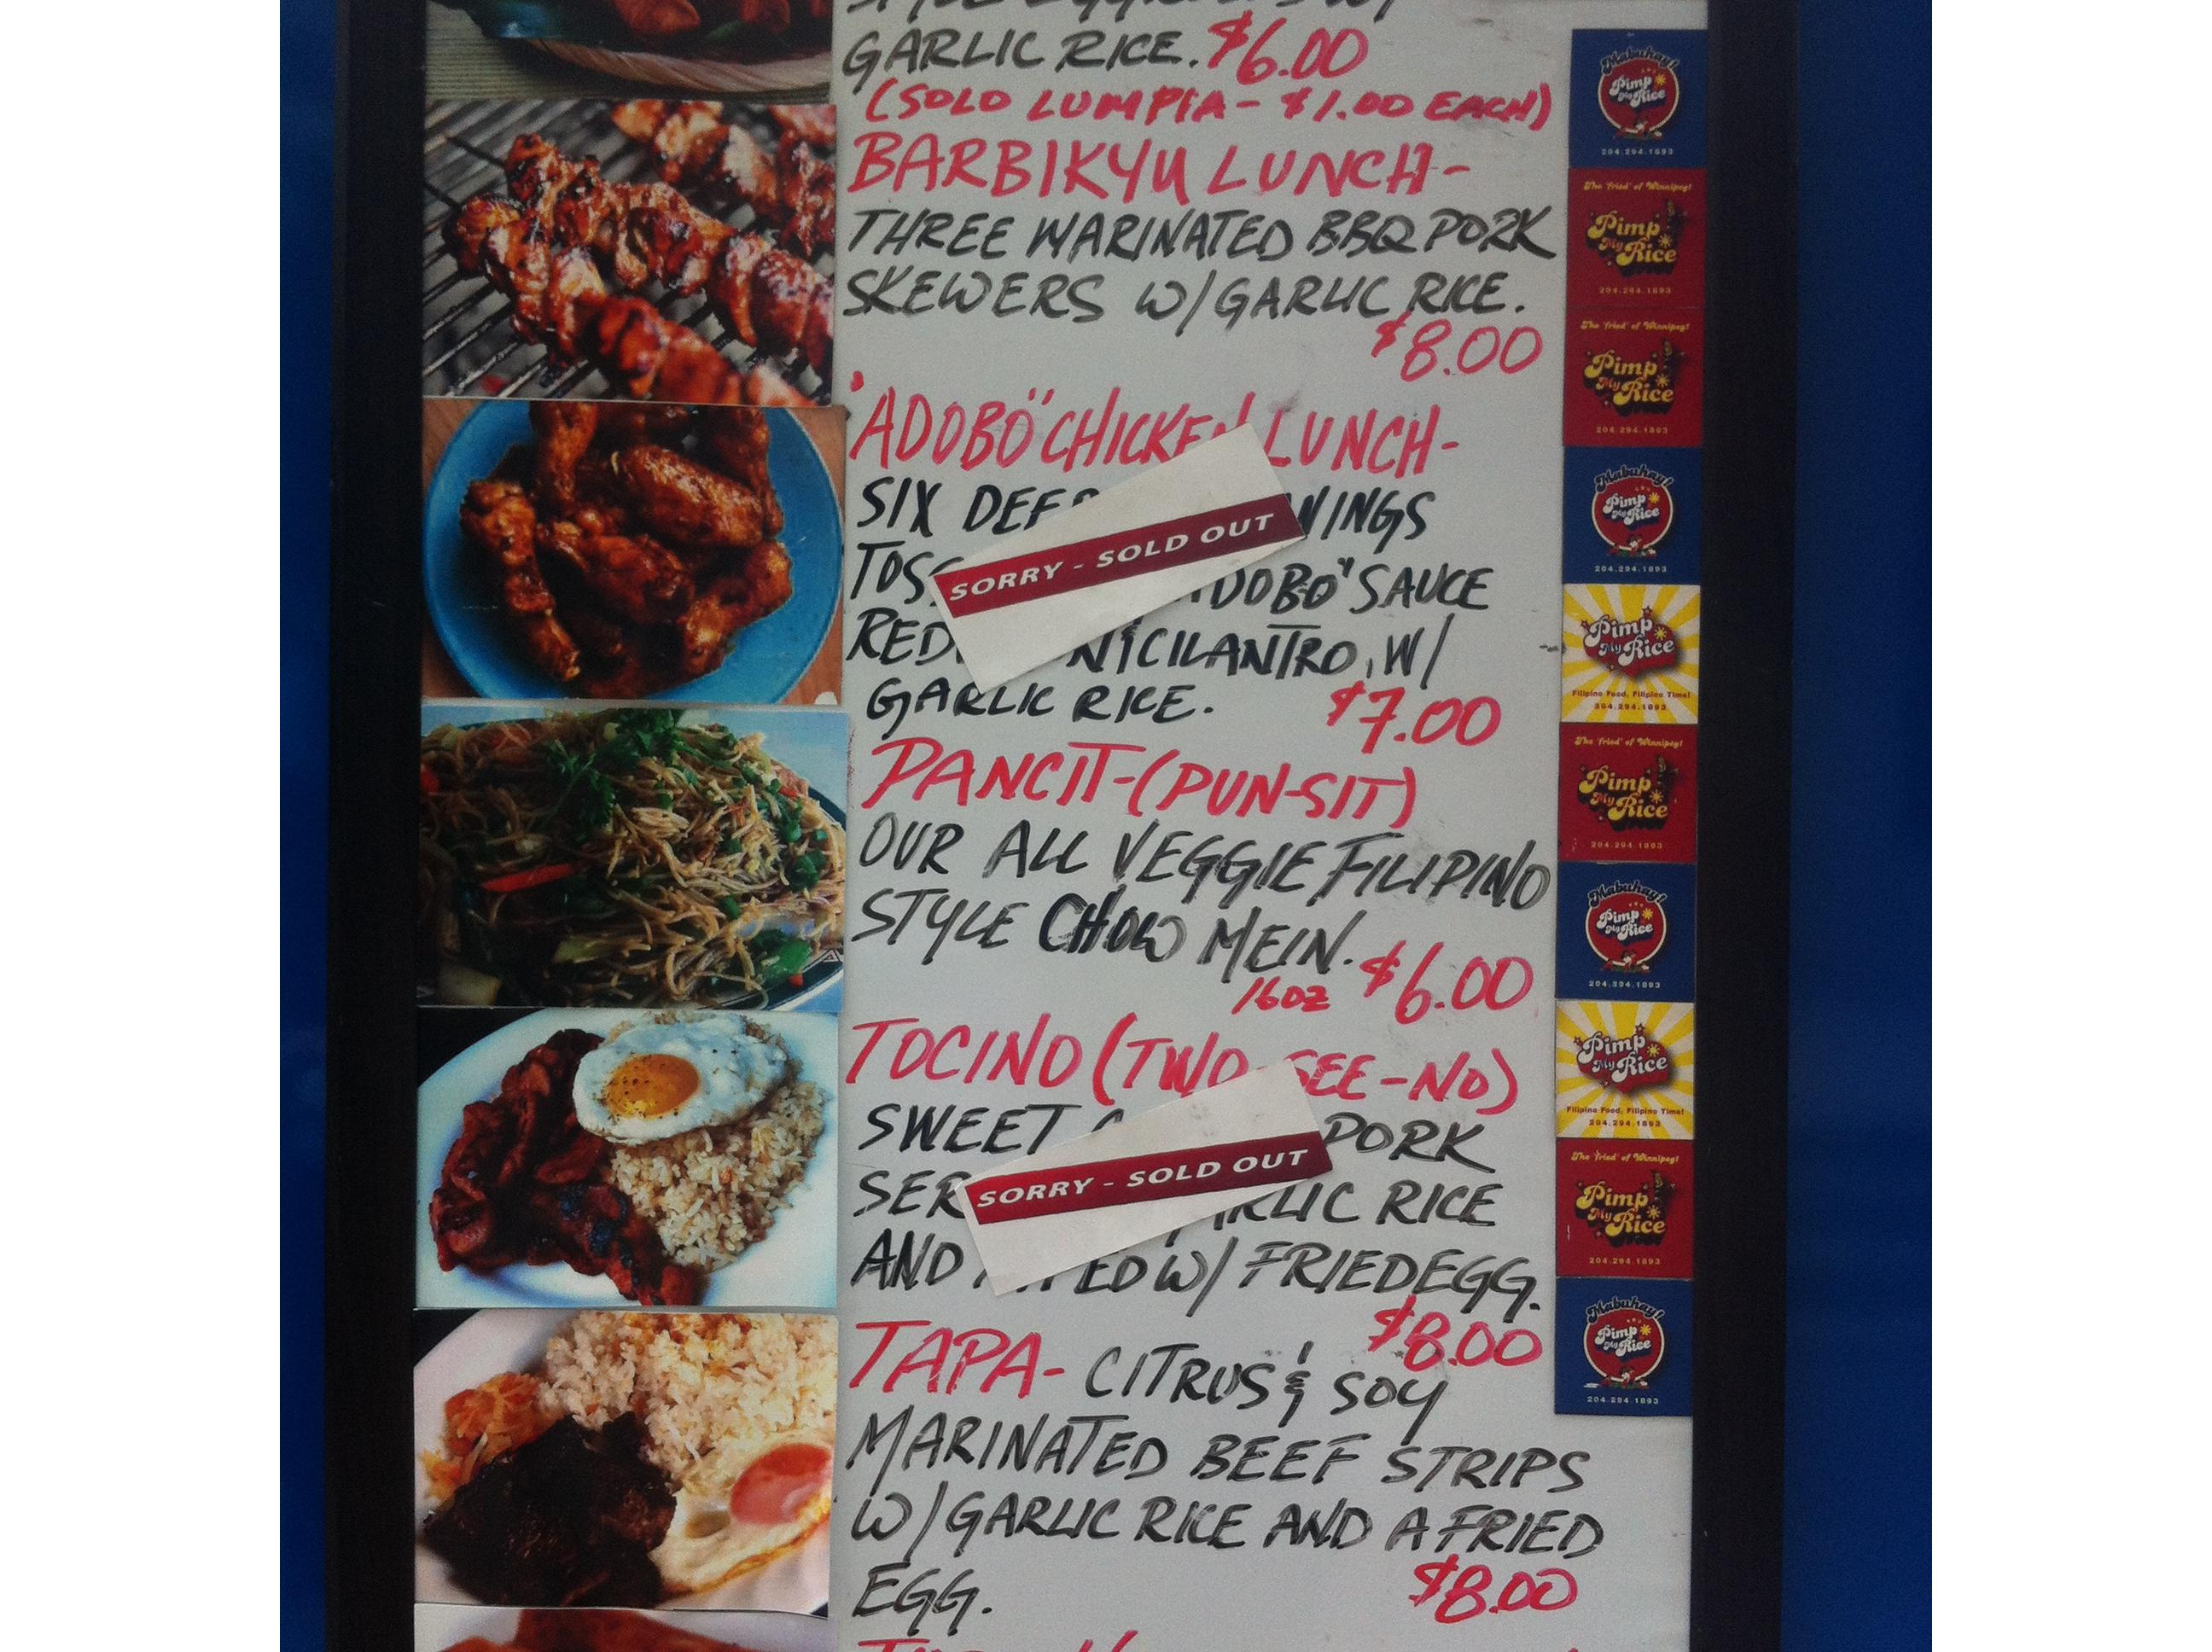 GARLIC RICE. $6.00
(SOLO LUMPIA - $1.00 EACH)
BARBIKYU LUNCH-
THREE MARINATED BBQ PORK
SKEWERS W/ GARLIC RICE.
$8.00
"ADOBO" CHICKEN LUNCH-
SIX
WINGS
SORRY - SOLD OUT
"ADOBO" SAUCE
CILANTRO, W/
GARLIC RICE. $7.00
PANCIT-(PUN-SIT)
OUR ALL VEGGIE FILIPINO
STYLE CHOW MEIN.
16oz $6.00
TOCINO (TWO-SEE-NO)
SWEET PORK
SORRY - SOLD OUT
RICE
AND W/ FRIED EGG.
$8.00
TAPA- CITRUS & SOY
MARINATED BEEF STRIPS
W/ GARLIC RICE AND A FRIED
EGG. $8.00
Mabuhay!
Pimp
My
Rice
204.294.1893
The 'fried' of Winnipeg!
Pimp
My
Rice
204.294.1893
The 'fried' of Winnipeg!
Pimp
My
Rice
204.294.1893
Mabuhay!
Pimp
My
Rice
204.294.1893
Pimp
My Rice
Filipino Food, Filipino Time!
204.294.1893
The 'fried' of Winnipeg!
Pimp
My
Rice
204.294.1893
Mabuhay!
Pimp
My
Rice
204.294.1893
Pimp
My Rice
Filipino Food, Filipino Time!
204.294.1893
The 'fried' of Winnipeg!
Pimp
My
Rice
204.294.1893
Mabuhay!
Pimp
My
Rice
204.294.1893